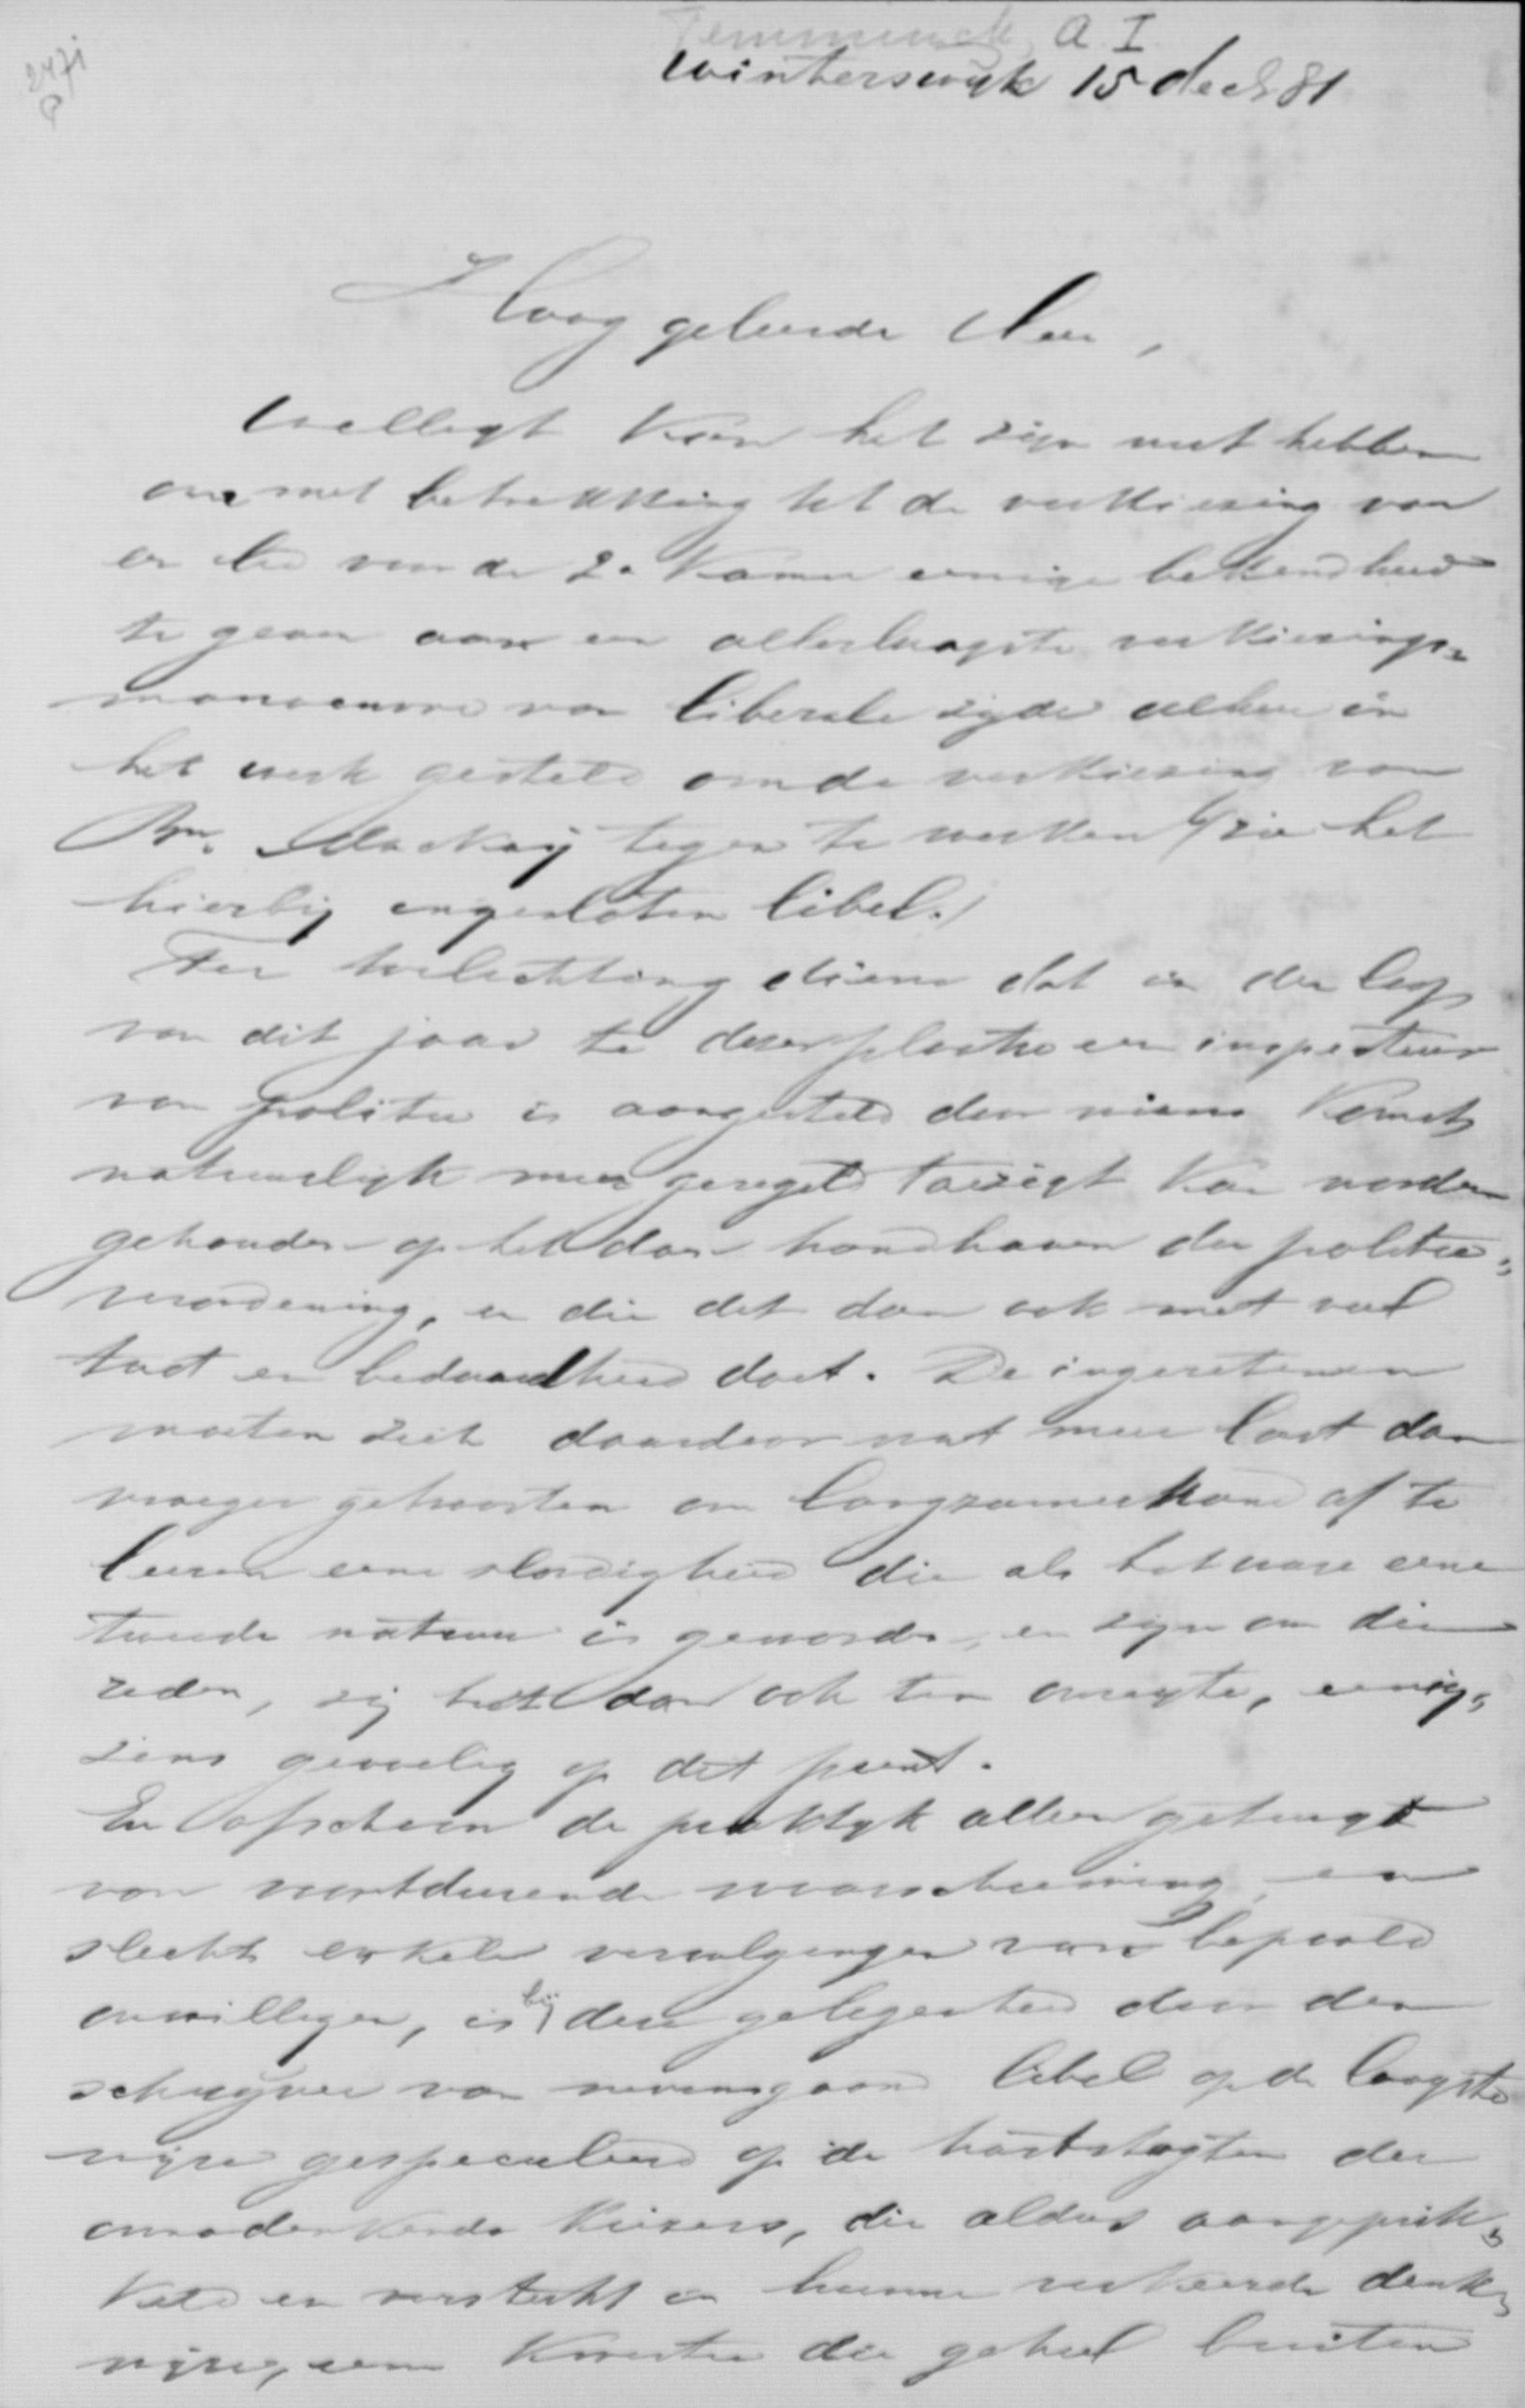 2471
Temminck, A I
Winterswijk 15 dec 81
Hoog geleerde Heer,
Wellegt kan het zijn nut hebben
om met betrekking tot de verkiezing van
en lid van de 2e Kamer eenige bekendheid
te geven aan een allerlaagste verkiezings=
manoeuvre van liberale zijde alhier in
het werk gesteld om de verkiezing van
Bn. Mackaij tegen te werken (zie het
hierbij ingesloten libel.)
Ter toelichting diene dat in den loop
van dit jaar te dezer plaatse een inspecteur
van politie is aangesteld door wiens komst
natuurlijk meer geregeld toezigt kan worden
gehouden op het doen handhaven der politie=
verordening, en die dit dan ook met veel
tact en bedaardheid doet. De ingezetenen
moeten zich daardoor wat meer last dan
vroeger getroosten om langzamerhand af te
leeren eene slordigheid die als het ware eene
tweede natuur is geworden, en zijn om die
reden, zij het dan ook ten onregte, eenig=
zins gevoelig op dit punt.
En ofschoon de praktijk alleen getuigt
van voortdurende waarschuwing en
slechts enkele vervolgingen van bepaald
onwilligen, is bij deze gelegenheid door den
schrijver van nevensgaand libel op de laagste
wijze gespeculeerd op de hartstogten der
onnadenkende kiezers, die aldus aangeprik=
keld en versterkt in hunne verkeerde denk=
wijze, eene kwestie die geheel buiten